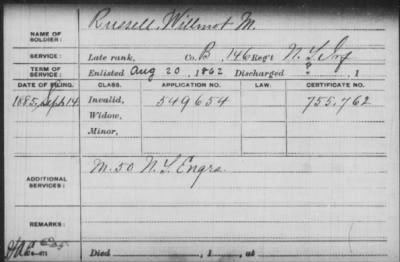 NAME OF SOLDIER: Russell, Willmot M.
SERVICE: Late rank, Co. B, 146 Reg't N. Y. Inf
TERM OF SERVICE: Enlisted Aug 20, 1862 Discharged ?, 1
DATE OF FILING. CLASS. APPLICATION NO. LAW. CERTIFICATE NO.
1885, Sept 14 Invalid, 549654 755,762
Widow,
Minor,
ADDITIONAL SERVICES: M. 50 N. Y. Engrs.
REMARKS:
Died , 1 , at